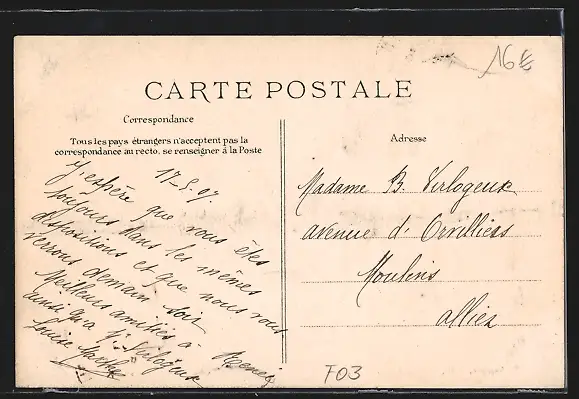 16€
CARTE POSTALE
Correspondance
Tous les pays étrangers n'acceptent pas la
correspondance au recto, se renseigner à la Poste
Adresse
17-5.07.
J'espère que vous êtes
toujours dans les mêmes
dispositions et que nous vous
verrons demain soir
Meilleurs amitiés à Renée
ainsi qu'a Virlogeux
Louise
Madame B. Virlogeux
avenue d'Orvilliers
Moulins
allier
F03